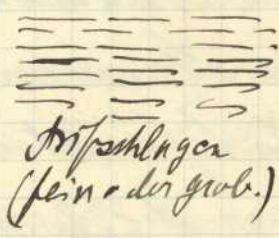 Aufschlagen
(fein oder grob.)